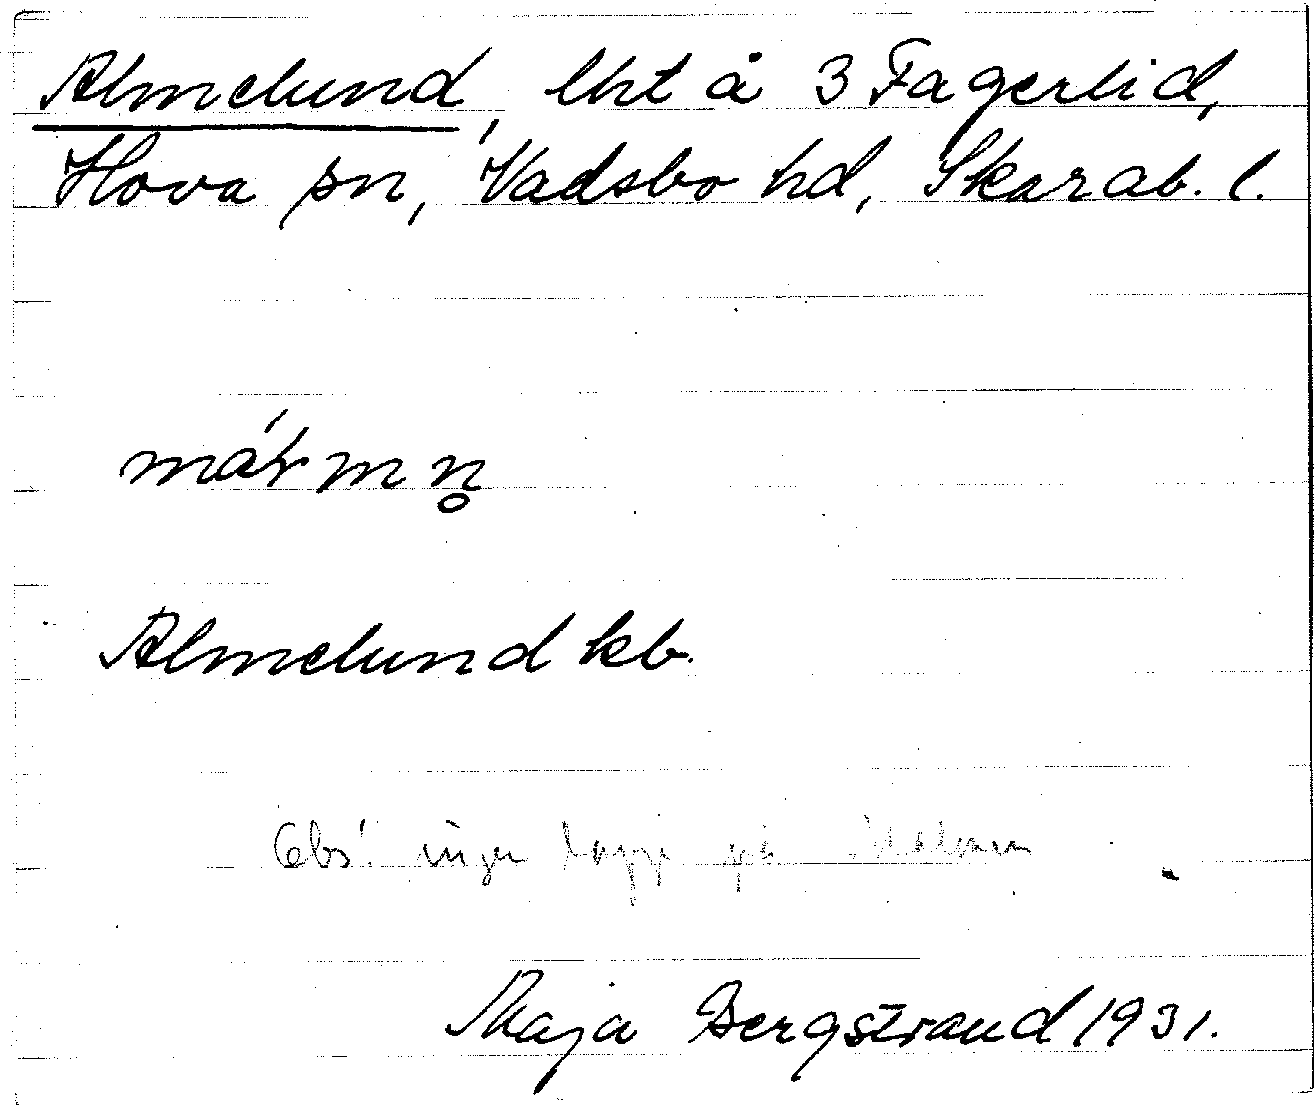 Almelund, lht å 3 Fagerlid,
Hova sn, Vadsbo hd, Skarab. l.
Almelund kb.
Obs! ingen lapp på
Maja Bergstrand 1931.